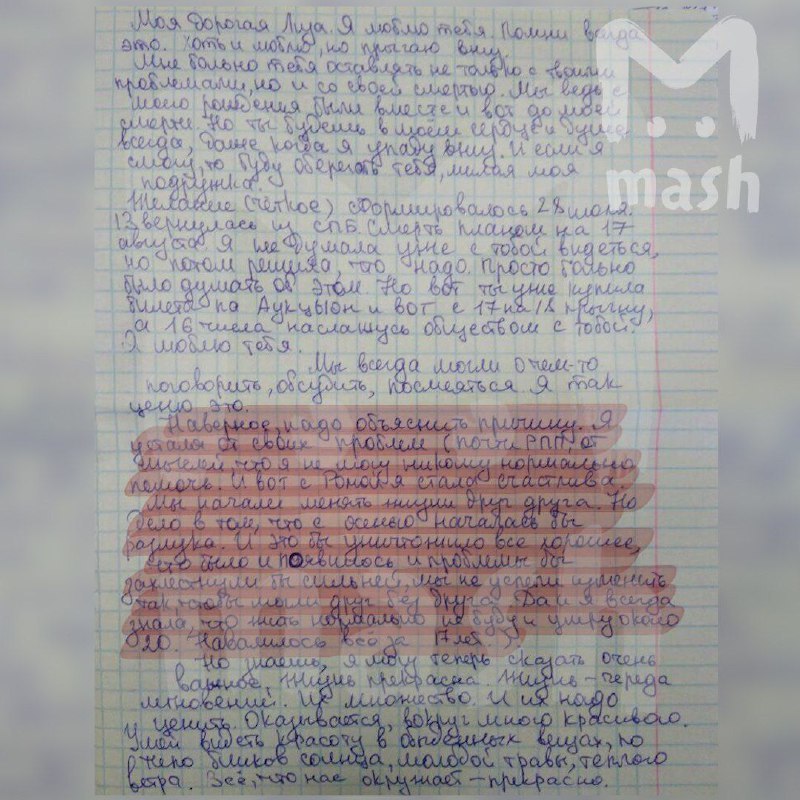 Моя дорогая Лиза. Я люблю тебя. Помни всегда
это. Хоть и люблю, но прыгаю вниз.
Мне больно тебя оставлять не только с твоими
проблемами, но и со своей смертью. Мы ведь с
моего рождения были вместе и вот до моей
смерти. Но ты будешь в моём сердце и душе
всегда, даже когда я упаду вниз. И если я
смогу, то буду оберегать тебя, милая моя
подружка.
mash
Желание (чёткое) сформировалось 28 июня.
Я вернулась из СПБ. Смерть планом на 17
августа. Я не думала уже с тобой видеться,
но потом решила, что надо. Просто больно
было думать об этом. Но вот ты уже купила
билета на АукцЫон и вот с 17 на 18 прыгну,
а 16 числа наслажусь обществом с тобой.
Я люблю тебя.
Мы всегда могли о чем-то
поговорить, обсудить, посмеяться. Я так
ценю это.
Наверное, надо объяснить причину. Я
устала от своих проблем (почти РПП, от
мыслей, что я не могу никому нормально
помочь. И вот с я стала счастлива.
Мы начали менять жизни друг друга. Но
дело в том, что с осенью началась бы
разлука. И это бы уничтожило все хорошее,
что было и появилось и проблемы бы
захлестнули бы сильней, мы не успели изменить
так, чтобы могли друг без друга. Да и я всегда
знала, что жить нормально не буду и умру около
20. Навалилось всё за 17 лет.
Но знаешь, я могу теперь сказать очень
важное, жизнь прекрасна. Жизнь – череда
мгновений. Их множество. И их надо
ценить. Оказывается, вокруг много красивого.
Умей видеть красоту в обыденных вещах,
бликов солнца, молодой травы, теплого
ветра. Всё, что нас окружает – прекрасно.